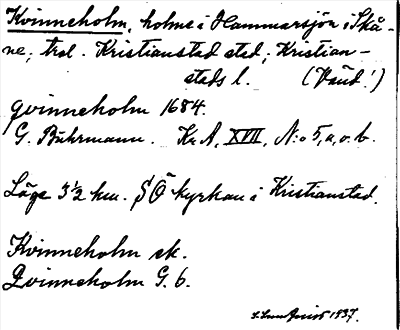 Kvinneholm, holme i Hammarsjön i Skå-
ne; trol. Kristianstad stad; Kristian-
stads l. (Vänd!)
qvinneholm 1684.
G. Buhrmann. Kr A, XVII, N:o 5, a, o. b.
Läge 3 1/2 km. SÖ kyrkan i Kristianstad.
Kvinneholm sk.
Qvinneholm G. b.
1937.